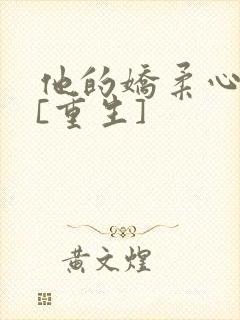 他的嬌柔心
[重生]
黃文煌